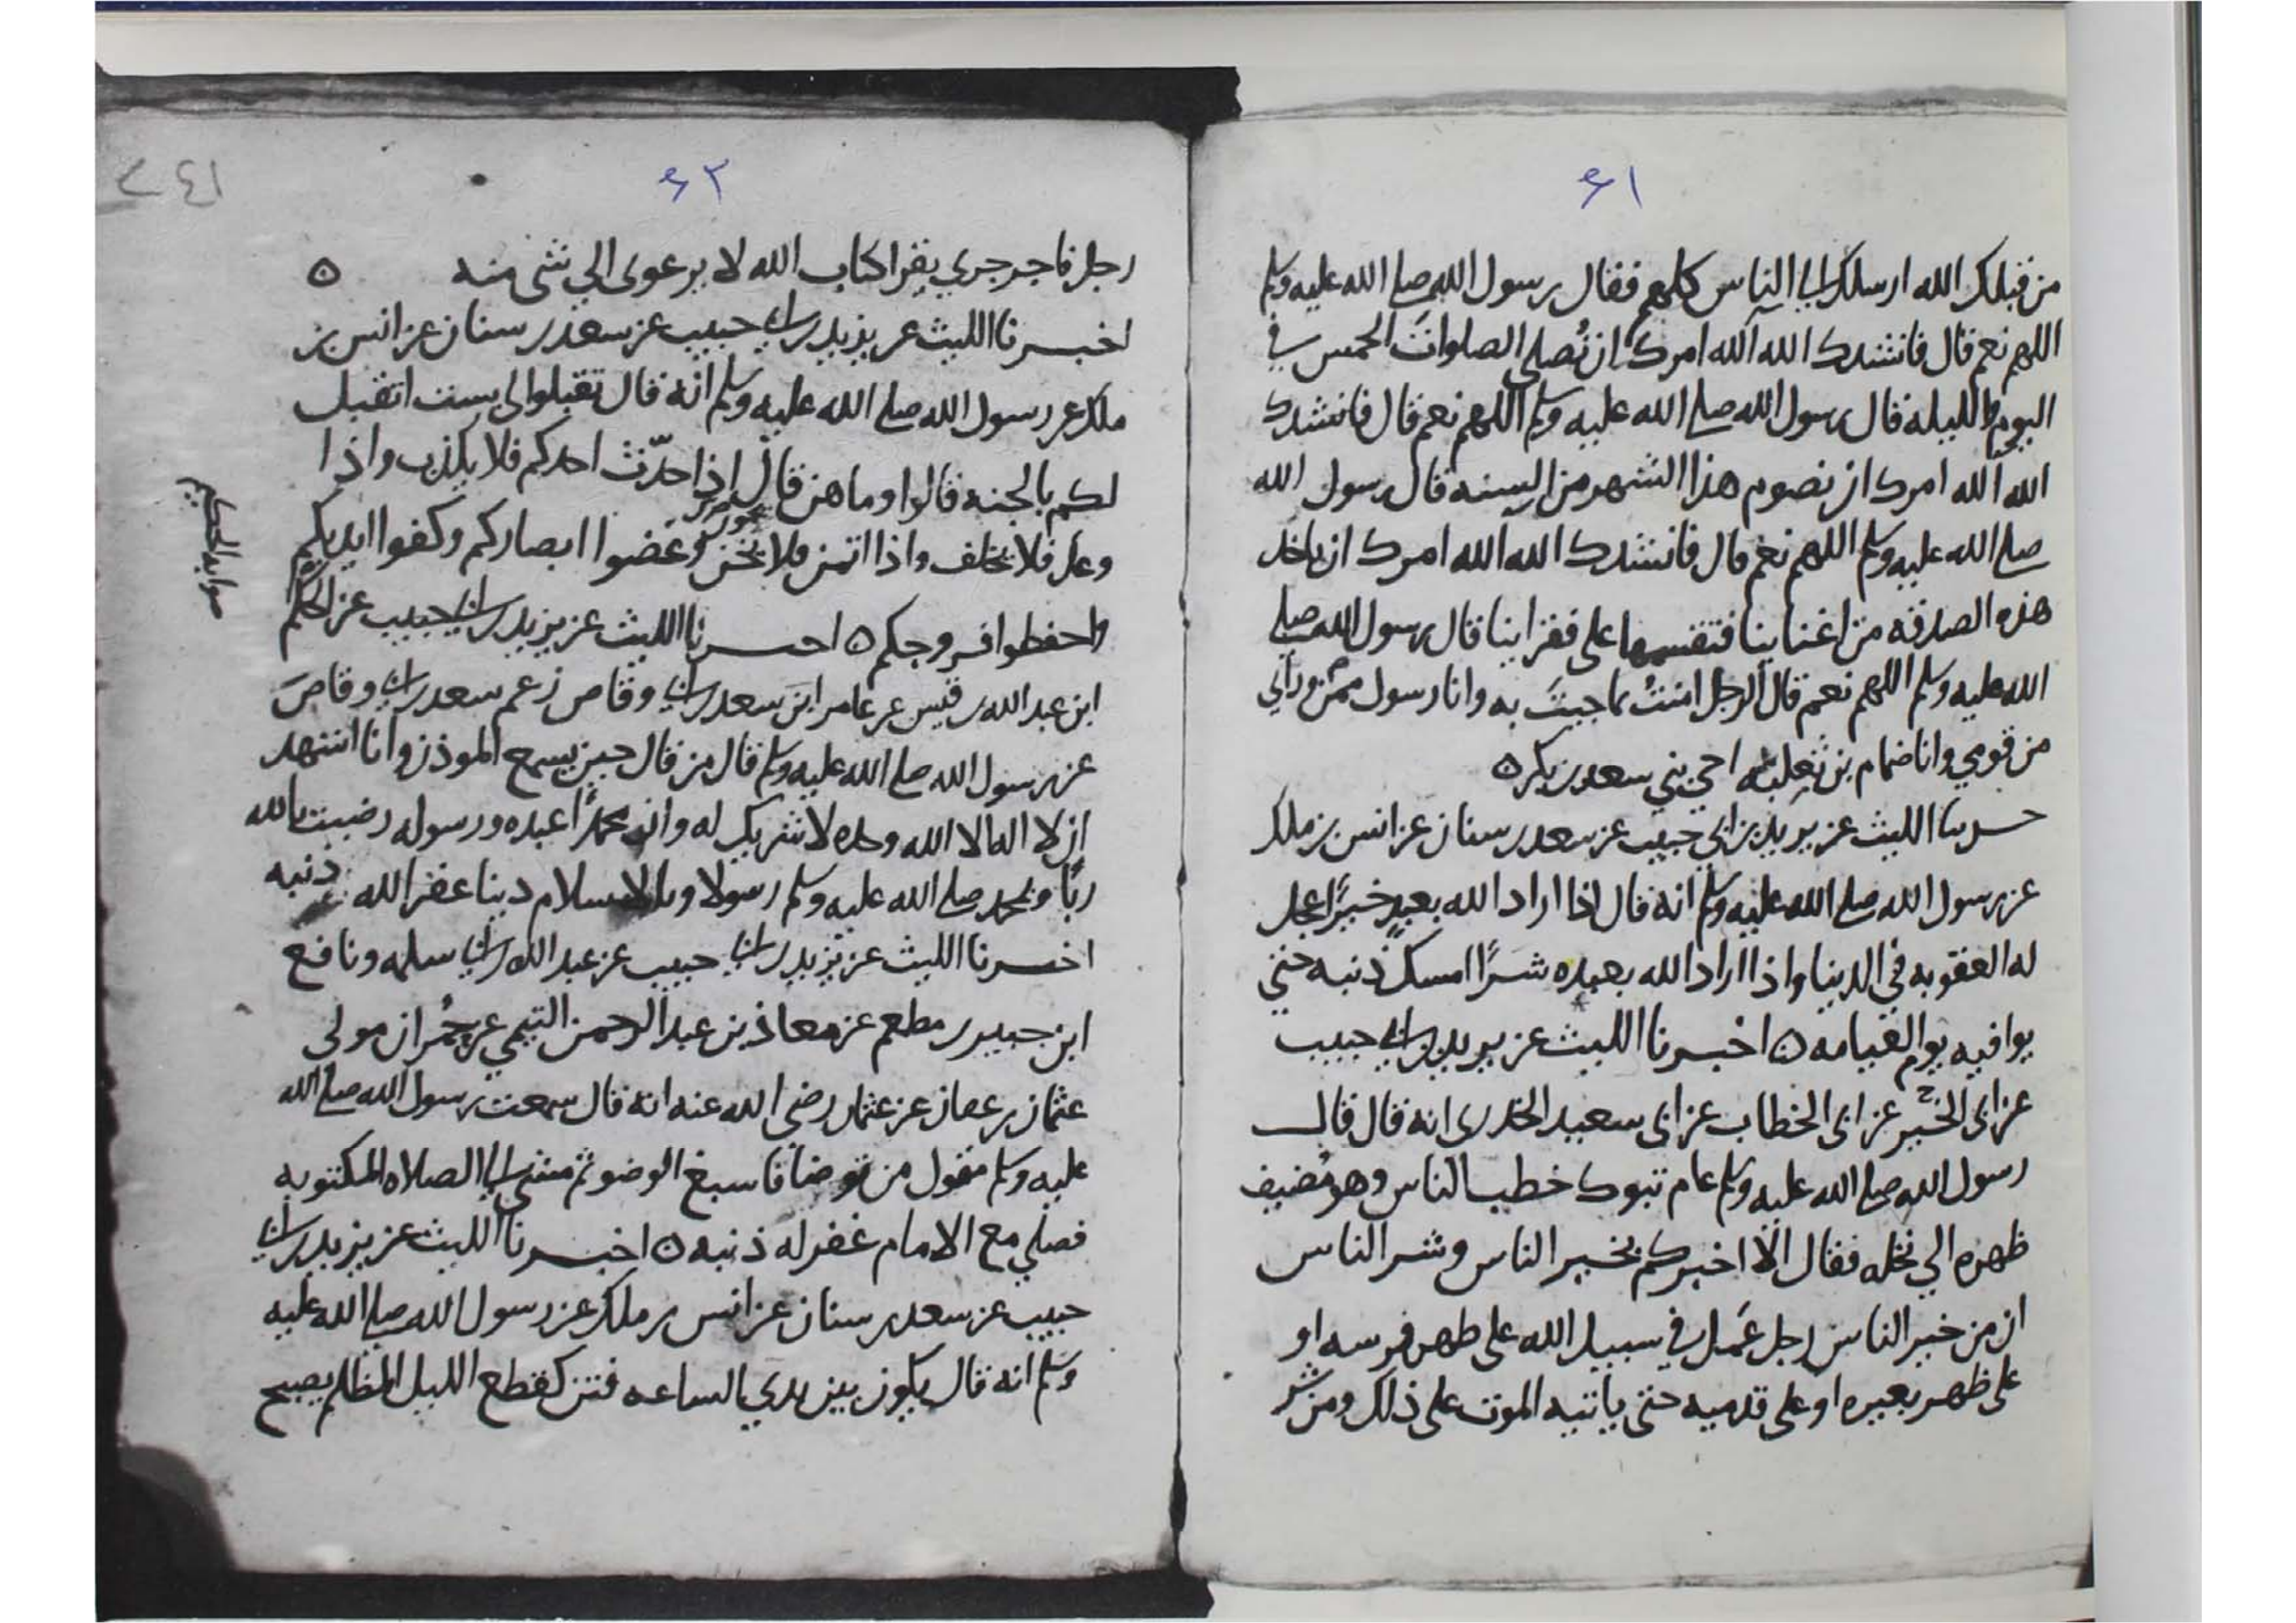 ٤١
من قبلك الله ارسلك الي الناس كلهم فقال رسول الله صلى الله عليه وسلم
اللهم نعم قال فانشدك الله آلله امرك ان تُصلي الصلوات الخمس في
اليوم والليله قال رسول الله صلى الله عليه وسلم اللهم نعم قال فانشدك
الله آلله امرك ان نصوم هذا الشهر من السنه قال رسول الله
صلى الله عليه وسلم اللهم نعم قال فانشدك الله آلله امرك ان تاخذ
هذه الصدقه من اغنيائنا فتقسمها على فقرائنا قال رسول الله صلى
الله عليه وسلم اللهم نعم قال الرجل امنتُ بما جيتَ به وانا رسول من وراي
من قومي وانا ضمام بن ثعلبه اخي بني سعد بن بكر ٥
حدثنا الليث عن يزيد بن ابي حبيب عن سعد بن سنان عن انس بن ملك
عن رسول الله صلى الله عليه وسلم انه قال اذا اراد الله بعبدٍ خيرًا عجل
له العقوبه في الدنيا واذا اراد الله بعبده شرًا امسك ذنبه حتي
يوافيه يوم القيامه ٥ اخبرنا الليث عن يزيد بن ابي حبيب
عن ابي الخير عن ابي الخطاب عن ابي سعيد الخدري انه قال قال
رسول الله صلى الله عليه وسلم عام تبوك خطب الناس وهو مُضيف
ظهره الي نخله فقال الا اخبركم بخير الناس وشر الناس
ان من خير الناس رجل عَمل في سبيل الله على ظهر فرسه او
على ظهر بعيره او على قدميه حتى ياتيه الموت على ذلك ومن شر
٤٢
٤١
رجل فاجر جري يقرا كتاب الله لا يرعوي الي شي منه ٥
اخبرنا الليث عن يزيد بن ابي حبيب عن سعد بن سنان عن انس بن
ملك عن رسول الله صلى الله عليه وسلم انه قال تقبلوا لي بست اتقبل
لكم بالجنه قالوا وما هن قال اذا حدّث احدكم فلا يكذب واذا
وعد فلا يخلف واذا اتمن فلا يخن وغضوا ابصاركم وكفوا ايديكم
واحفظوا فروجكم ٥ اخبرنا الليث عن يزيد بن ابي حبيب عن الحكم
صوابه الحكيم
ابن عبد الله بن قيس عن عامر ابن سعد بن ابي وقاص زعم سعد بن ابي وقاص
عن رسول الله صلى الله عليه وسلم قال من قال حين يسمع الموذن وانا اشهد
ان لا اله الا الله وحده لا شريك له وان محمدًا عبده ورسوله رضيت بالله
ربًا وبمحمد صلى الله عليه وسلم رسولا وبالاسلام دينا غفر الله ذنبه
اخبرنا الليث عن يزيد بن ابي حبيب عن عبد الله بن ابي سلمه ونافع
ابن جبير بن مطعم عن معاذ بن عبد الرحمن التيمي عن حُمران مولى
عثمان بن عفان عن عثمان رضي الله عنه انه قال سمعت رسول الله صلى الله
عليه وسلم يقول من توضا فاسبغ الوضو ثم مشي الي الصلاه المكتوبه
فصلي مع الامام غفر له ذنبه ٥ اخبرنا الليث عن يزيد بن ابي
حبيب عن سعد بن سنان عن انس بن ملك عن رسول الله صلى الله عليه
وسلم انه قال يكون بين يدي الساعه فتن كقطع الليل المظلم يصبح